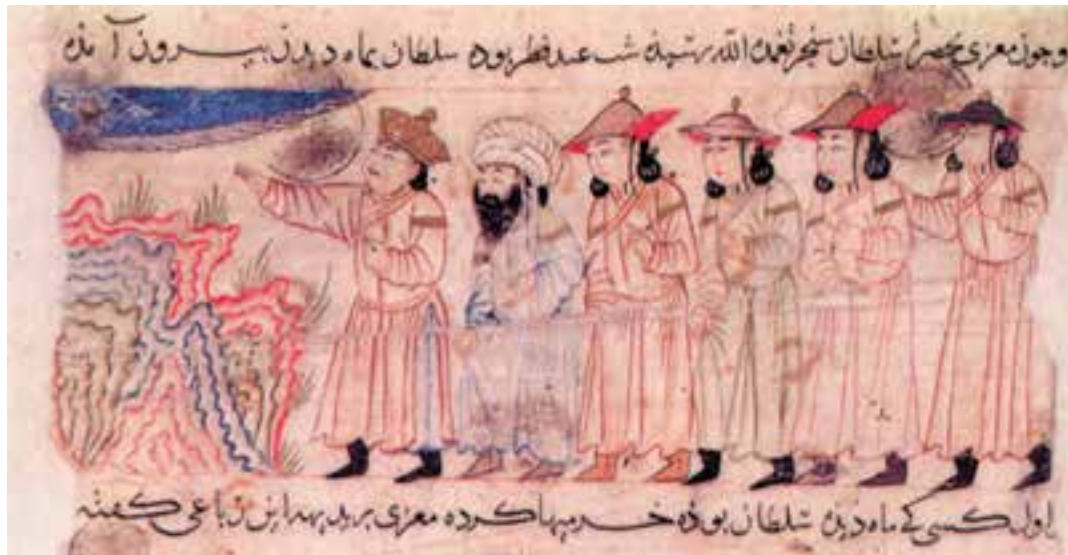 و جون معزی بحضرت سلطان سنجر تغمده الله رسیده شب عید فطر بوده سلطان بماه دیدن بیرون آمده
اول کسی که ماه دیده سلطان بوده خرمیها کرده معزی بر بدیهه این رباعی گفته